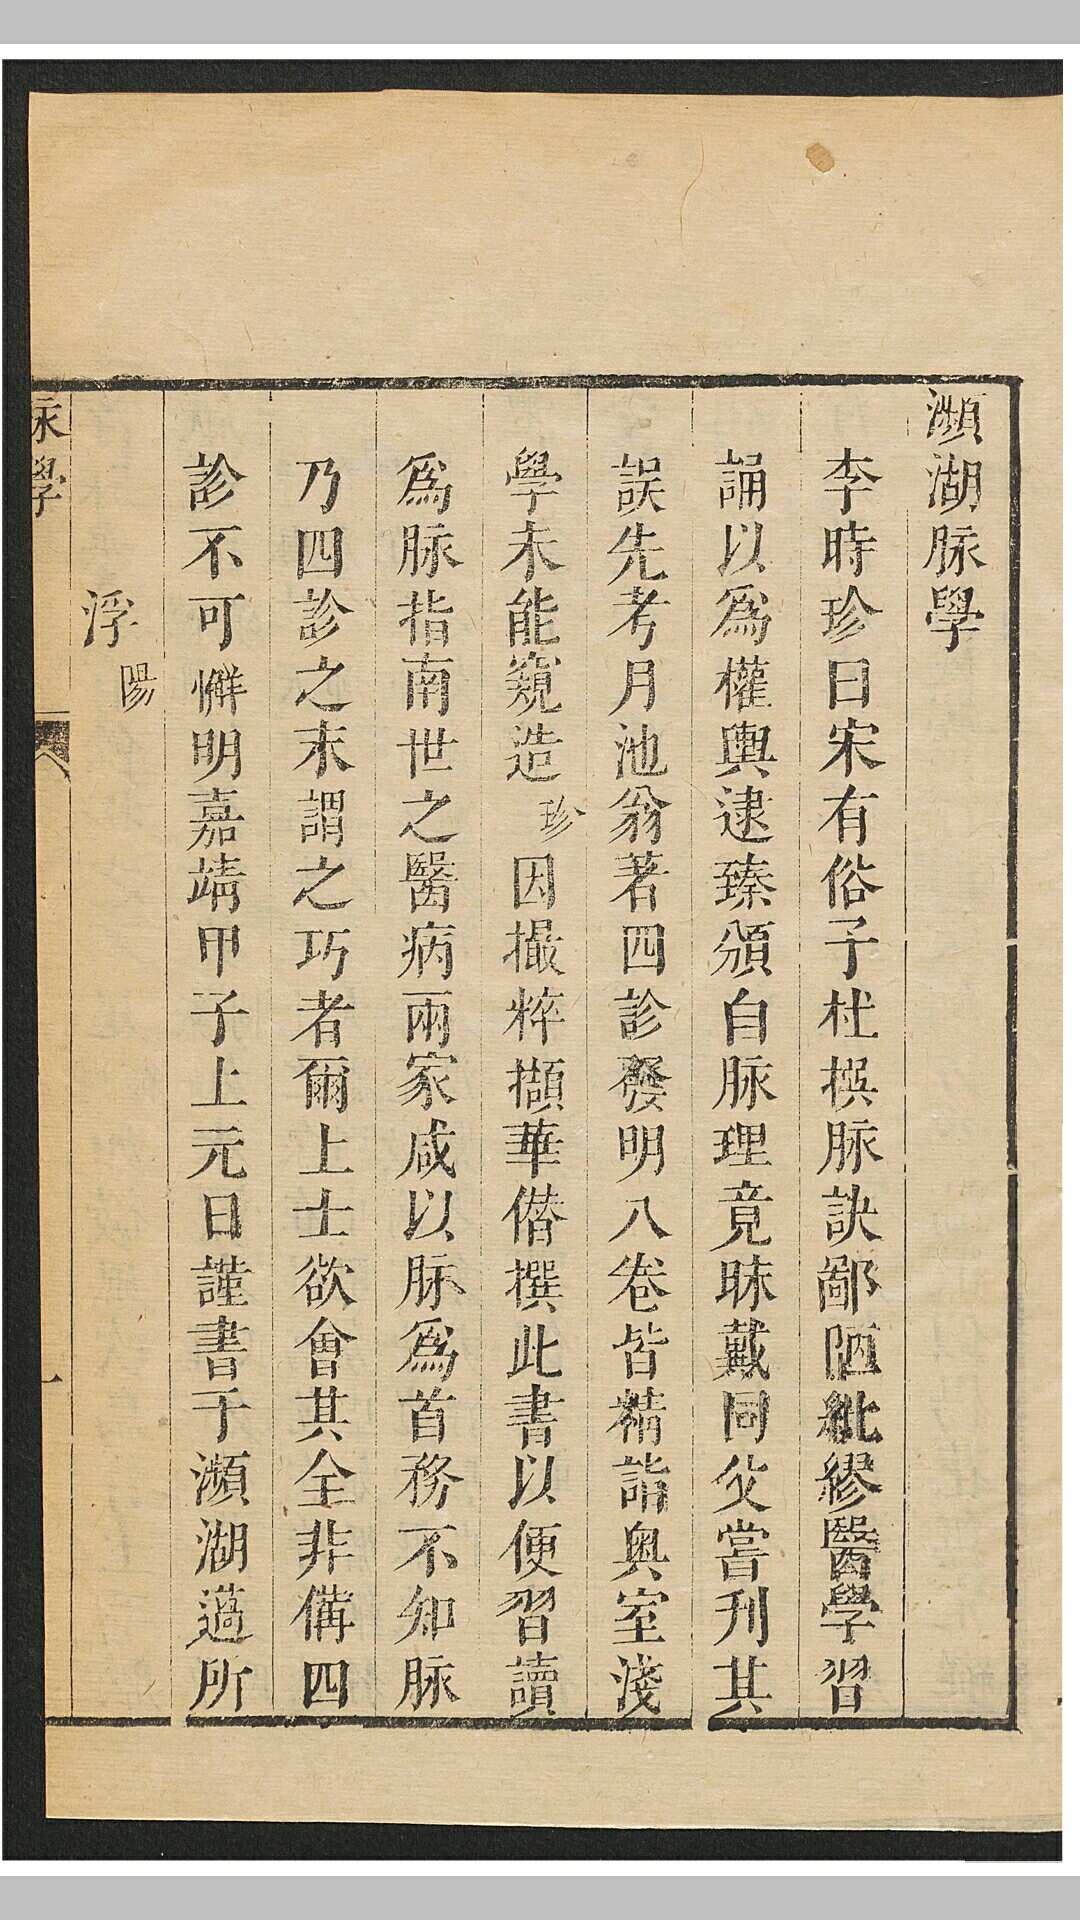 瀕湖脉學
李時珍曰宋有俗子杜撰脉訣鄙陋紕繆醫學習
誦以爲權輿逮臻頒白脉理竟昧戴同父嘗刋其
誤先考月池翁著四診發明八卷皆精詣奥室淺
學未能窺造珍因撮粹擷華僭撰此書以便習讀
爲脉指南世之醫病兩家咸以脉爲首務不知脉
乃四診之末謂之巧者爾上士欲會其全非備四
診不可懈明嘉靖甲子上元日謹書于瀕湖薖所
浮陽
脉學
一